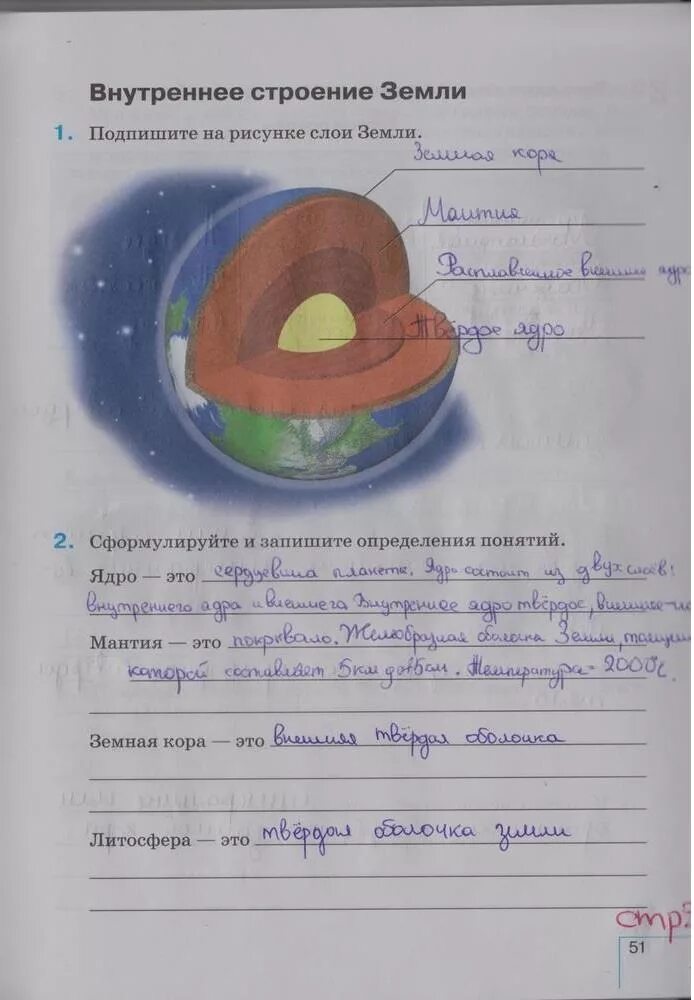 Внутреннее строение Земли
1. Подпишите на рисунке слои Земли.
Земная кора
Мантия
Расплавленное внешнее ядро
Твёрдое ядро
2. Сформулируйте и запишите определения понятий.
Ядро — это сердцевина планеты. Ядро состоит из двух слоёв:
внутреннего ядра и внешнего Внутреннее ядро твёрдое, внешнее-
Мантия — это покрывало. Желеобразная оболочка Земли,
которой составляет 5км до 8 км. Температура= 2000°с.
Земная кора — это внешняя твёрдая оболочка
Литосфера — это твёрдая оболочка зимли
стр
51